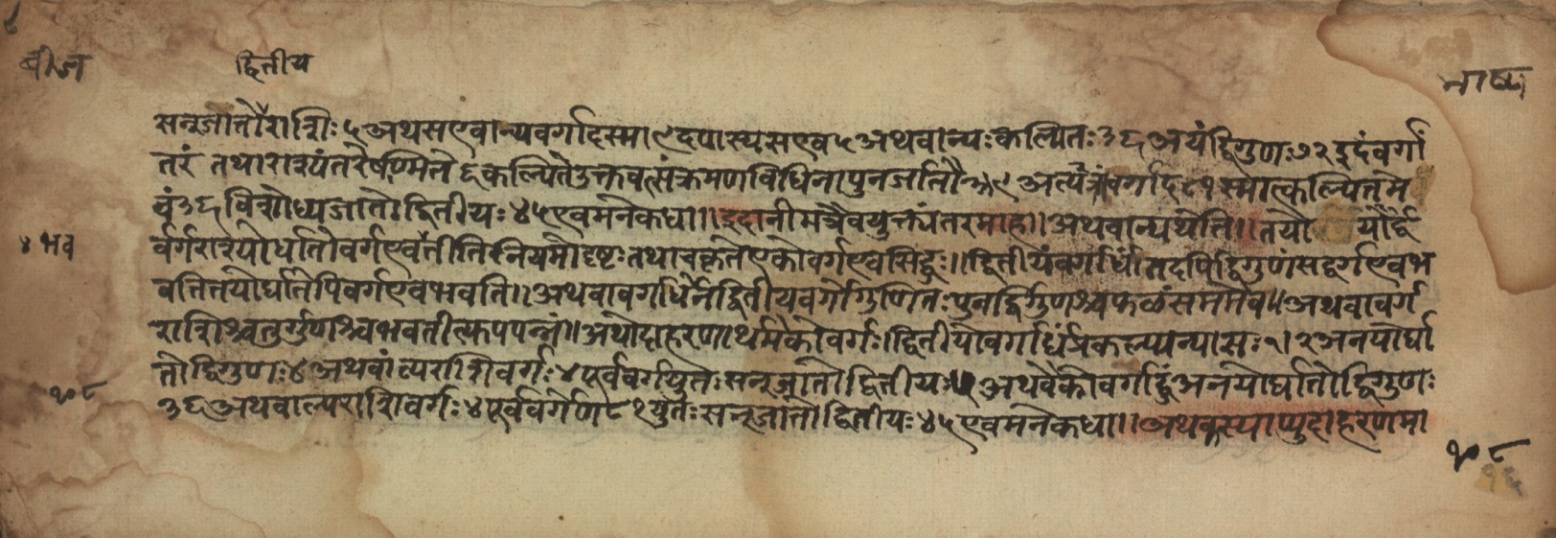 बीज द्वितीय भाष्य
सन्जातोराशिः ५ अथसएवान्यवर्गादस्मा ९ दपास्यसएव ५ अथवान्यःकल्पितः ३६ अयंद्विगुणः ७२ इदंवर्गां
तरं तथाराश्यंतरेषण्मिते ६ कल्पितेउक्तवत्संक्रमणविधिनापुनर्जातौ अल्प वर्गाद् ८१ स्मात्कल्पितमे
वं ३६ विशोध्यजातोद्वितीयः ४५ एवमनेकधा॥ इदानीमत्रैवयुक्त्यंतरमाह॥ अथवान्यथेति॥ तयो र्द्व
४ भव र्वर्गराश्योर्घातोवर्गएवेतीतिनियमोदृष्टः तथाचकृतेएकोवर्गएवसिद्धः॥ द्वितीयंवर्गार्धं तदपिद्विगुणंसद्वर्गएवभ
वतितयोर्घातेपिवर्गएवभवति॥ अथवावर्गार्धेनद्वितीयवर्गोगुणितः पुनर्द्विगुणश्चफलंसममेव॥ अथवावर्ग
राशिश्चतुर्गुणश्चभवतीत्युपपन्नं॥ अथोदाहरणार्थमेकोवर्गः। द्वितीयोवर्गार्धंप्रकल्प्यन्यासः १। २ अनयोर्घा
तोद्विगुणः ४ अथवाल्पराशिवर्गः ४ पूर्ववर्गयुतः सन्जातोद्वितीयः ५ अथवैकोवर्गार्द्धं अनयोर्घातोद्विगुणः
१०८ ३६ अथवाल्पराशिवर्गः ४ पूर्ववर्गेण ८१ युतः सन्जातोद्वितीयः ४५ एवमनेकधा॥ अथकस्याप्युदाहरणमा
१०८
१६